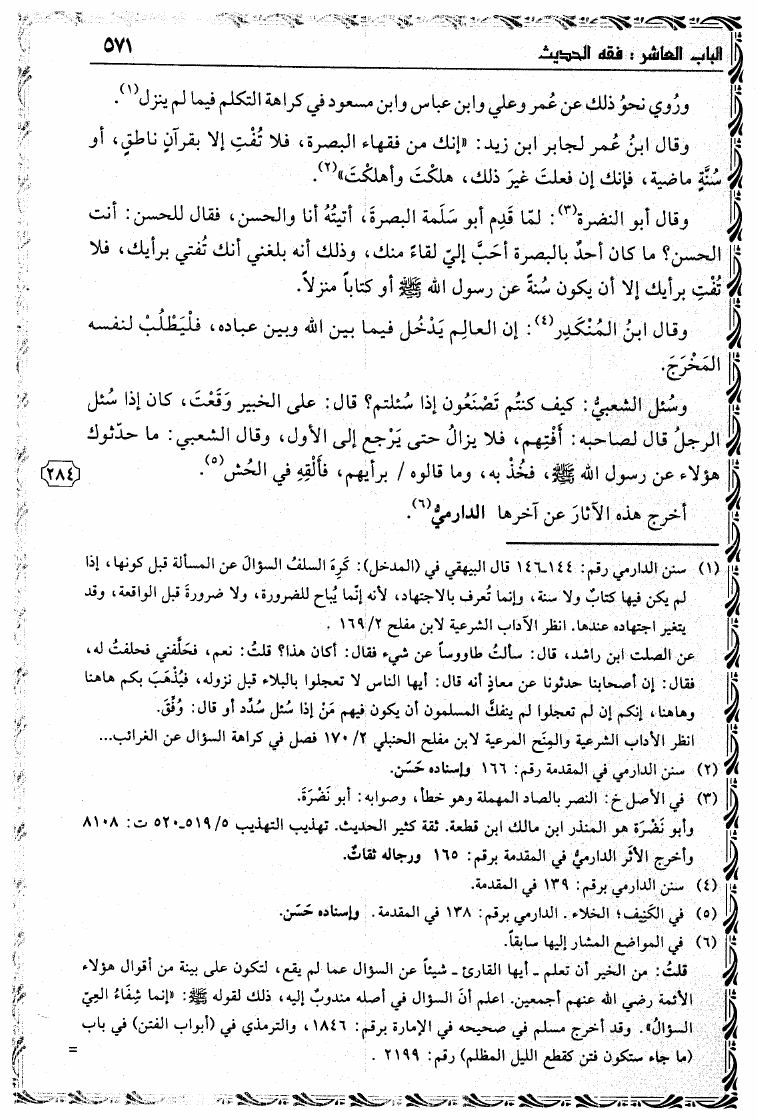 الباب العاشر : فقه الحديث ٥٧١
ورُوي نحوُ ذلك عن عُمر وعلي وابن عباس وابن مسعود في كراهة التكلم فيما لم ينزل(١).
وقال ابنُ عُمر لجابر ابن زيد: «إنك من فقهاء البصرة، فلا تُفْتِ إلا بقرآنٍ ناطقٍ، أو
سُنَّةٍ ماضية، فإنك إن فعلتَ غيرَ ذلك، هلكْتَ وأهلكْتَ»(٢).
وقال أبو النضرة(٣): لمّا قَدِم أبو سَلَمة البصرةَ، أتيتُهُ أنا والحسن، فقال للحسن: أنت
الحسن؟ ما كان أحدٌ بالبصرة أحَبَّ إليّ لقاءً منك، وذلك أنه بلغني أنك تُفتي برأيك، فلا
تُفْتِ برأيك إلا أن يكون سُنةً عن رسول الله ﷺ أو كتاباً منزلاً.
وقال ابنُ المُنْكَدِر(٤): إن العالِم يَدْخُل فيما بين الله وبين عباده، فلْيَطْلُبْ لنفسه
المَخْرَجَ.
وسُئل الشعبيُّ: كيف كنتُم تَصْنَعُون إذا سُئلتم؟ قال: على الخبير وَقَعْتَ، كان إذا سُئل
الرجلُ قال لصاحبه: أَفْتِهم، فلا يزالُ حتى يَرْجع إلى الأول، وقال الشعبي: ما حدّثوك
هؤلاء عن رسول الله ﷺ، فخُذْ به، وما قالوه / برأيهم، فأَلْقِهِ في الحُش(٥).
٢٨٤
أخرج هذه الآثارَ عن آخرها الدارميُّ(٦).
(١) سنن الدارمي رقم: ١٤٤ـ١٤٦ قال البيهقي في (المدخل): كَرِهَ السلفُ السؤالَ عن المسألة قبل كونها، إذا
لم يكن فيها كتابٌ ولا سنة، وإنما تُعرف بالاجتهاد، لأنه إنّما يُباح للضرورة، ولا ضرورةَ قبل الواقعة، وقد
يتغير اجتهاده عندها. انظر الآداب الشرعية لابن مفلح ١٦٩/٢ .
عن الصلت ابن راشد، قال: سألتُ طاووساً عن شيء فقال: أكان هذا؟ قلتُ: نعم، فحَلَّفني فحلفتُ له،
فقال: إن أصحابنا حدثونا عن معاذٍ أنه قال: أيها الناس لا تعجلوا بالبلاء قبل نزوله، فيُذْهَبَ بكم هاهنا
وهاهنا، إنكم إن لم تعجلوا لم ينفكَّ المسلمون أن يكون فيهم مَنْ إذا سُئل سُدِّد أو قال: وُفِّقَ.
انظر الأداب الشرعية والمِنَح المرعية لابن مفلح الحنبلي ١٧٠/٢ فصل في كراهة السؤال عن الغرائب...
(٢) سنن الدارمي في المقدمة رقم: ١٦٦ وإسناده حَسَن.
(٣) في الأصل خ: النصر بالصاد المهملة وهو خطأ، وصوابه: أبو نَضْرَةَ.
وأبو نَضْرَة هو المنذر ابن مالك ابن قطعة. ثقة كثير الحديث. تهذيب التهذيب ٥١٩/٥ـ٥٢٠ ت: ٨١٠٨
وأخرج الأثَر الدارميُّ في المقدمة برقم: ١٦٥ ورجاله ثقاتٌ.
(٤) سنن الدارمي برقم: ١٣٩ في المقدمة.
(٥) في الكَنِيف؛ الخلاء . الدارمي برقم: ١٣٨ في المقدمة . وإسناده حَسَن.
(٦) في المواضع المشار إليها سابقاً.
قلتُ: من الخير أن تعلم ـ أيها القارئ ـ شيئاً عن السؤال عما لم يقع، لتكون على بينة من أقوال هؤلاء
الأئمة رضي الله عنهم أجمعين. اعلم أنَ السؤال في أصله مندوبٌ إليه، ذلك لقوله ﷺ: «إنما شِفَاءُ العِيّ
السؤالُ». وقد أخرج مسلم في صحيحه في الإمارة برقم: ١٨٤٦، والترمذي في (أبواب الفتن) في باب
(ما جاء ستكون فتن كقطع الليل المظلم) رقم: ٢١٩٩ . =